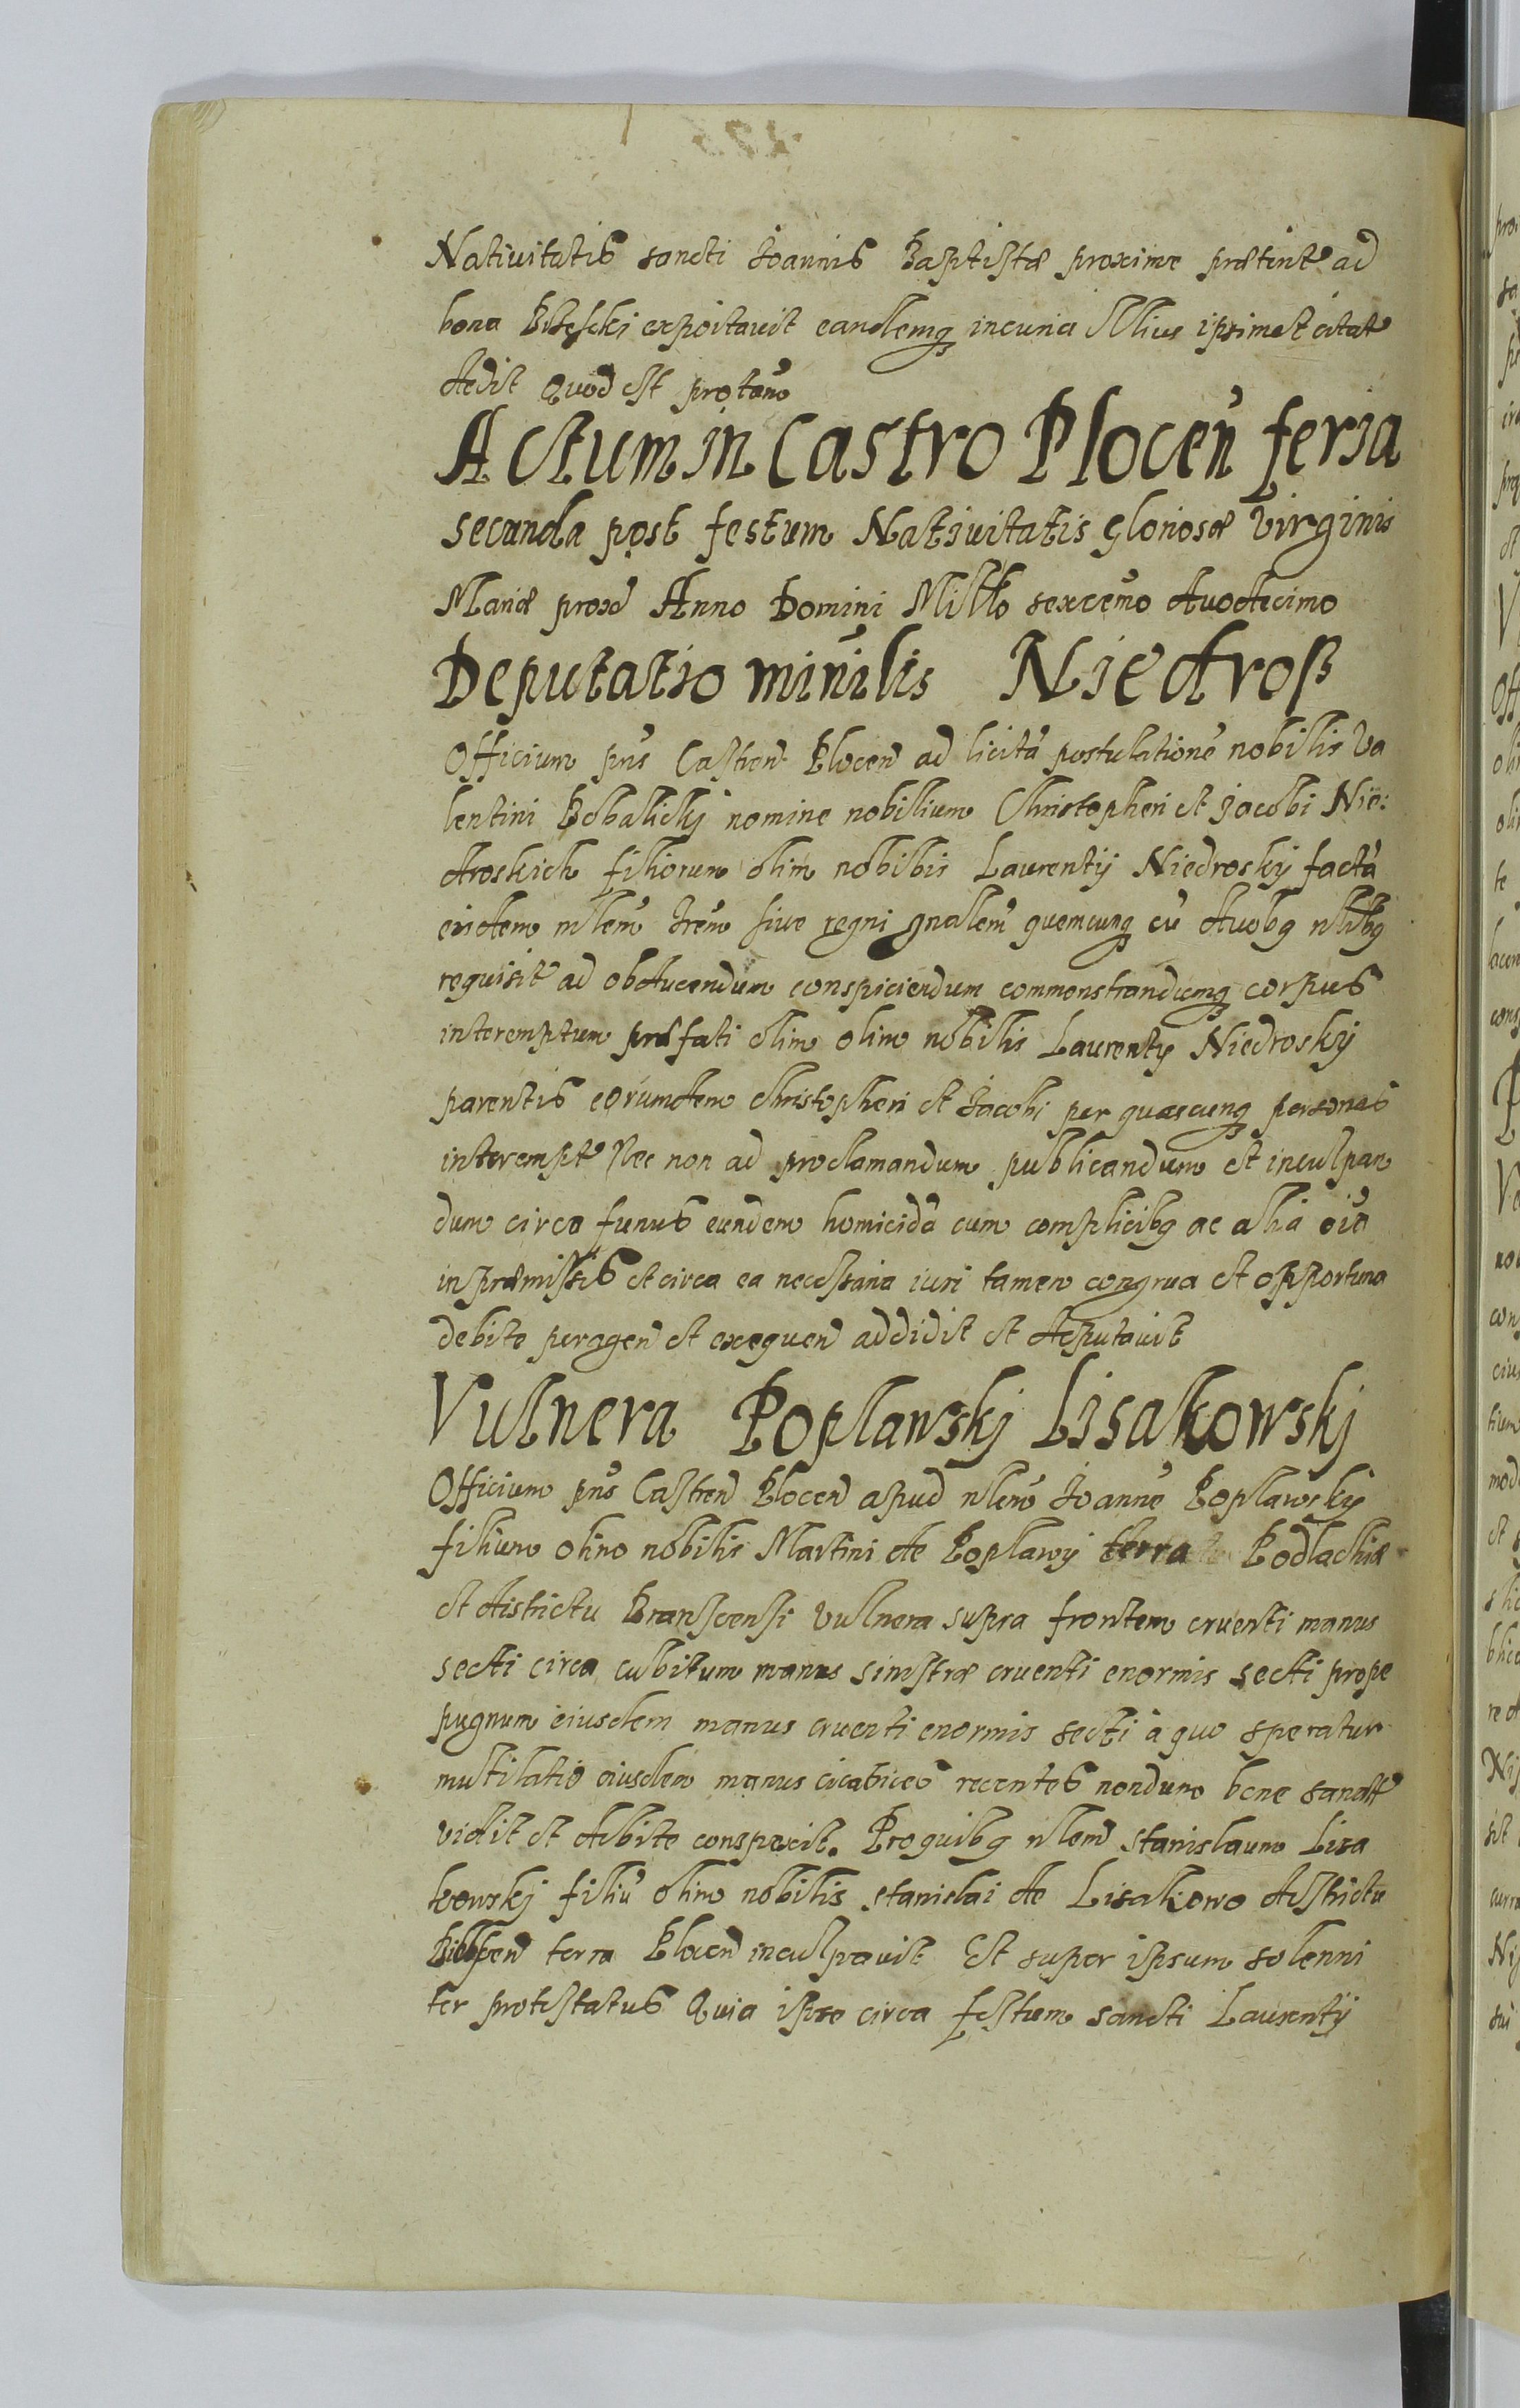 Nativitatis sancti Joannis Baptistæ proxime præterit ad
bona exportavit eandemq incuria illius ipsimet citat
dedit Quod est protanō
Actum in Castro Plocen̄ feria
secunda post festum Nativitatis Gloriosæ Virginis
Mariæ prox Anno Domini Millo sexcen̄o duodecimo
Deputatio min̄ilis Niedroß
Officium pn̄s Castren Plocen ad licitā postulationē nobilis Va
lentini Bobalickj nomine nobilium Christopheri et Jacobi Nie:
droskich filiorum olim nobilis Laurentij Niedroskij factā
eisdem mlem̄ trem̄ sive regni gnalem̄ quemcunq cū duobq nblibq
requisit ad obducendum conspiciendum commonstrandumq corpus
interemptum præfati olim olim nobilis Laurentij Niedroskij
parentis eorumdem Christopheri et Jacobi per quascunq personas
interempt Nec non ad proclamandum publicandum et inculpan
dum circa funus eundem homicidā cum complicibq ac alia oīa
in præmissis et circa ea necessaria iuri tamen congrua et opportuna
debite peragen et exequen addidit et deputavit
Vulnera Poplawskj Lisakowskj
Officium pn̄s Castren Plocen apud nlem̄ Joannē Poplawskij
filium olim nobilis Martini de Poplawij terra Podlachiæ
et districtu Branscensi vulnera supra frontem cruenti manus
secti circa cubitum manus sinistræ cruenti enormis secti prope
pugnum eiusdem manus cruenti enormis secti à quo speratur
mutilatio eiusdem manus cicatrices recentes nondum bene sanat
vidit et debite conspexit. Proquibq nlem Stanislaum Lisa
kowskj filiū olim nobilis Stanislai de Lisakowo districtu
Bielscen terra Plocen inculpavit Et super ipsum solenni
ter protestatus Quia ipse circa festum sancti Laurentij